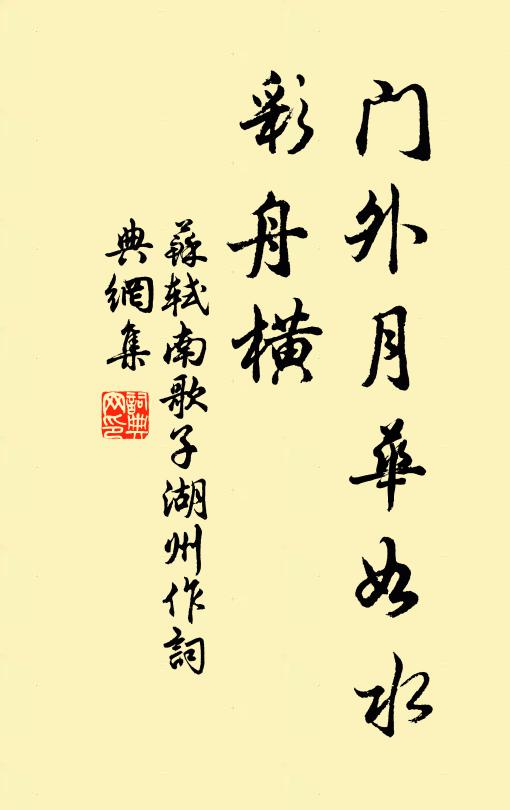 门外月華如水
彩舟橫
蘇軾南歌子湖州作詞
典網集
詞典
网印